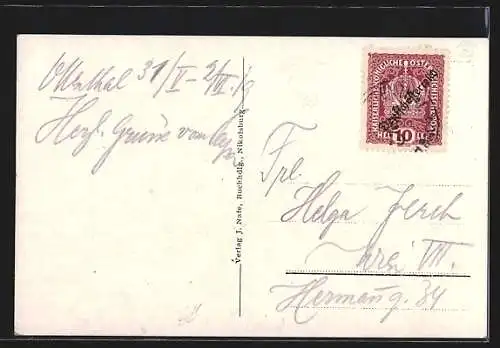 Ottenthal 31/V – 2/VI. 19
Herzl. Grüße von
Verlag J. Nafe, Buchhdlg., Nikolsburg.
KAISERLICHE KÖNIGLICHE ÖSTERREICHISCHE POST
Deutschösterreich
HELLER 10 HELLER
Frl.
Helga Jerch
Wien VIII.
Hermang. 34